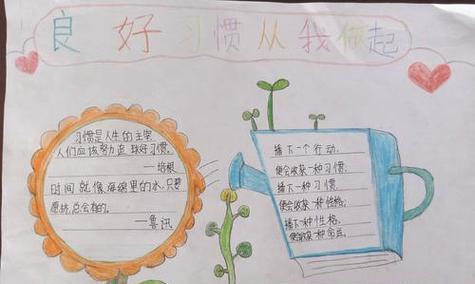 良好习惯从我做起
习惯是人生的主宰
人们应该努力追求好习惯。
——培根
时间就像海绵里的水,只要
愿挤,总会有的。
——鲁迅
播下一个行动,
便会收获一种习惯。
播下一种习惯,
便会收获一种性格;
播下一种性格,
便会收获一种命运。